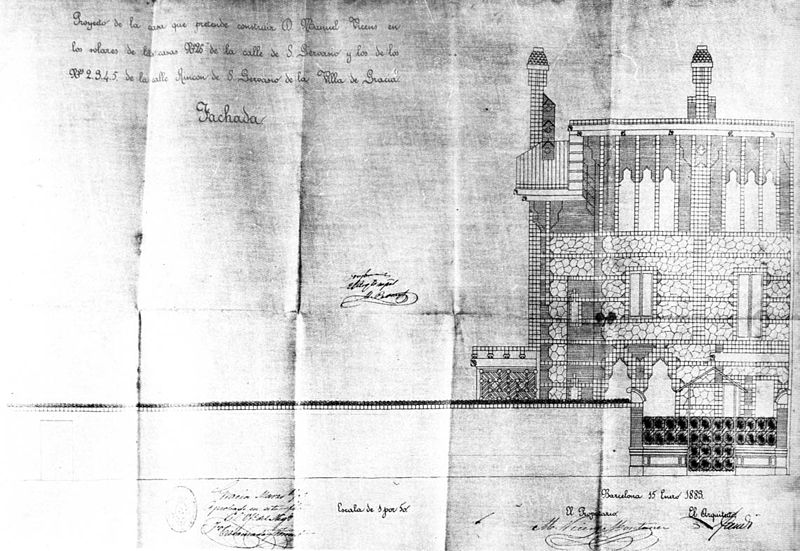 Proyecto de la casa que pretende construir D. Manuel Vicens en
los solares de las casas Nº 26 de la calle de S. Gervasio y los de los
Nº 2.3.4.5. de la calle Rincon de S. Gervasio de la Villa de Gracia.
Fachada
Gracia Marzo
Escala de 1 por 50
Barcelona 15 Enero 1883.
El Propietario
El Arquitecto
M. Vicens Montaner
Gaudí